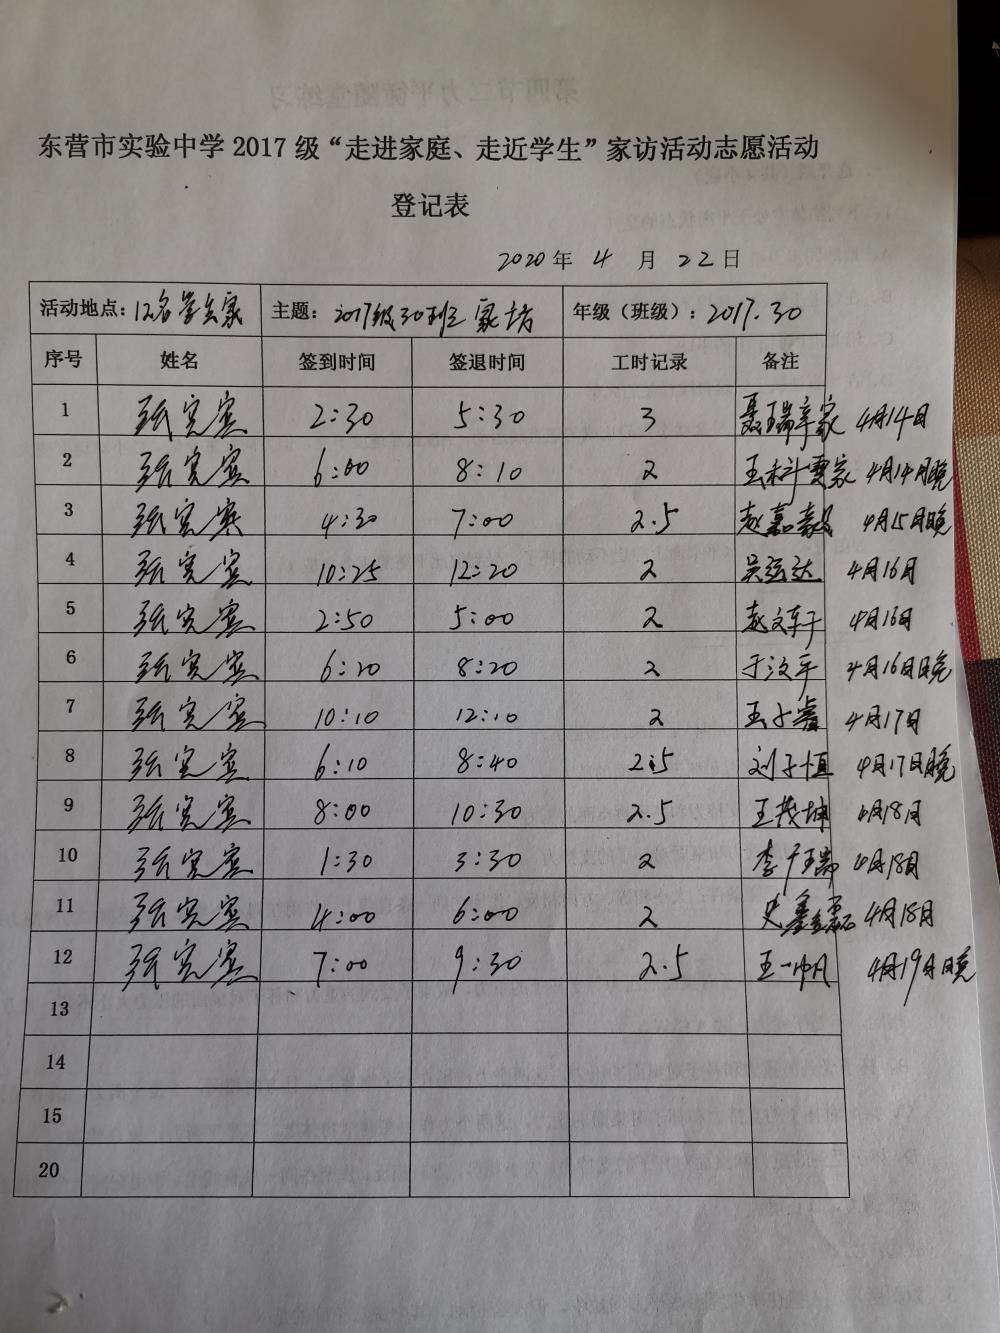 东营市实验中学 2017 级“走进家庭、走近学生”家访活动志愿活动
登记表
2020 年 4 月 22 日
活动地点：12名学生家 主题：2017级30班家访 年级（班级）：2017.30
序号 姓名 签到时间 签退时间 工时记录 备注
1 张宾宾 2:30 5:30 3 聂瑞辛家 4月14日
2 张宾宾 6:00 8:10 2 王科雯家 4月14日晚
3 张宾宾 4:30 7:00 2.5 赵嘉毅 4月15日晚
4 张宾宾 10:25 12:20 2 吴运达 4月16日
5 张宾宾 2:50 5:00 2 赵文 4月16日
6 张宾宾 6:20 8:20 2 于汶平 4月16日晚
7 张宾宾 10:10 12:10 2 王子睿 4月17日
8 张宾宾 6:10 8:40 2.5 刘子恒 4月17日晚
9 张宾宾 8:00 10:30 2.5 王茂坤 4月18日
10 张宾宾 1:30 3:30 2 李广瑞 4月18日
11 张宾宾 4:00 6:00 2 史鑫磊 4月18日
12 张宾宾 7:00 9:30 2.5 王一帆 4月19日晚
13
14
15
20